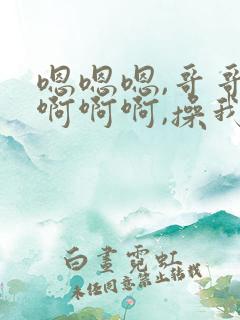 嗯嗯嗯,哥哥
啊啊啊,操我
白昼霓虹
未经同意禁止转载